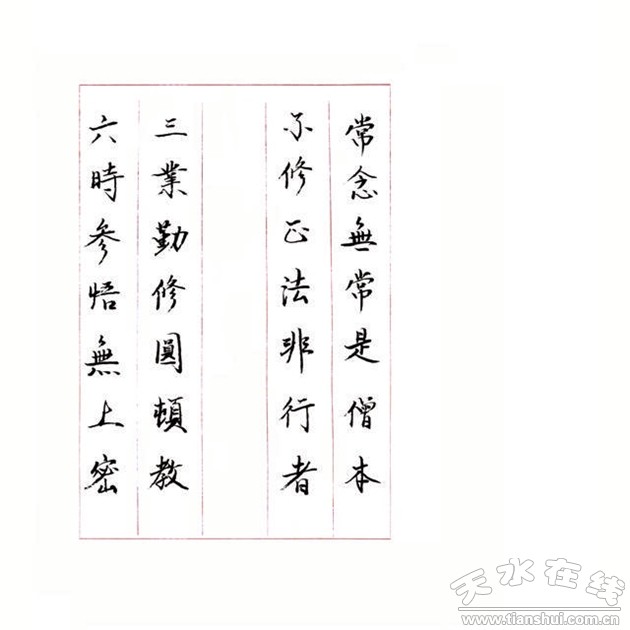 常念無常是僧本
不修正法非行者
三業勤修圓頓教
六時參悟無上密
天水在线
www.tianshui.com.cn